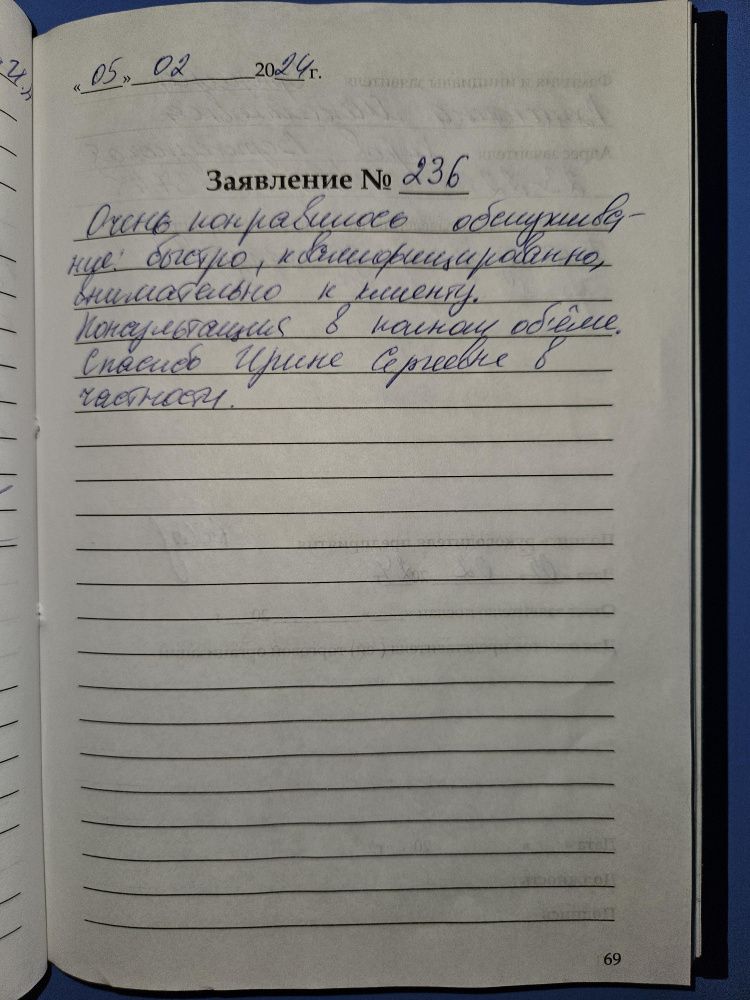 «05» 02 2024 г.
Заявление № 236
Очень понравилось обслужива-
ние: быстро, квалифицированно,
внимательно к клиенту.
Консультация в полном объёме.
Спасибо Ирине Сергеевне в
частности.
69